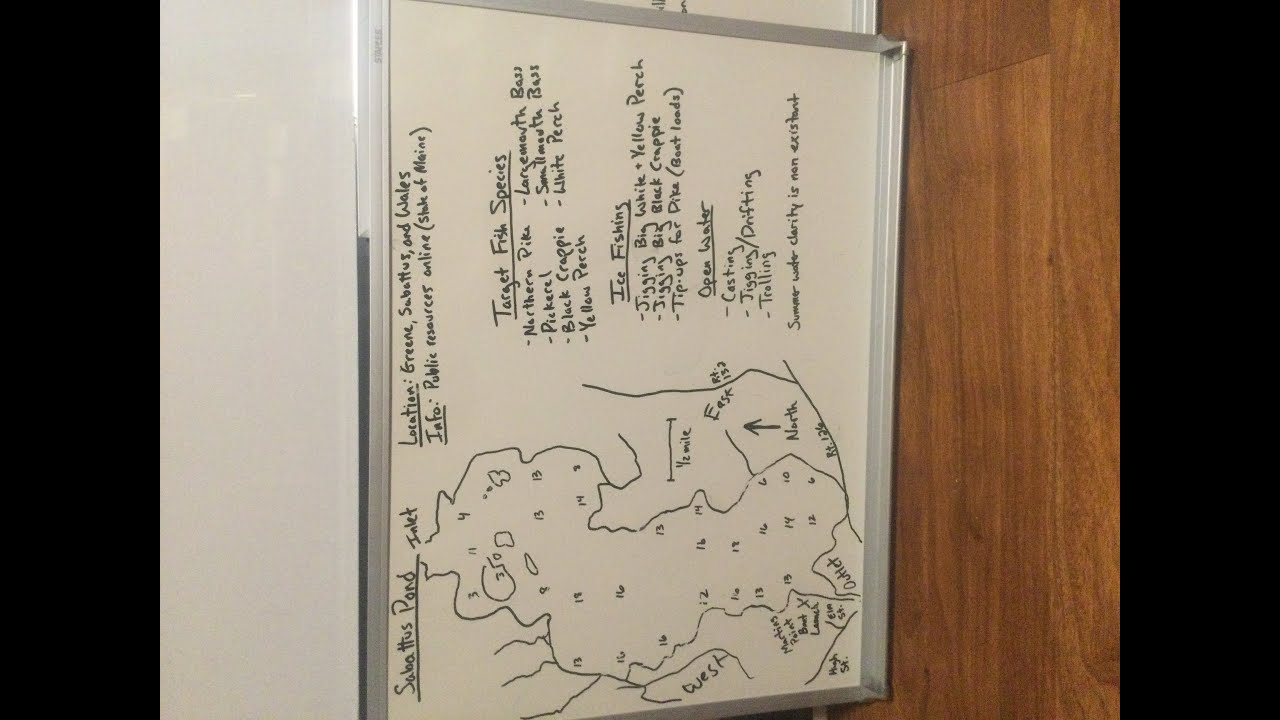 Sabattus Pond
Location: Greene, Sabattus, and Wales
Info: Public resources online (State of Maine)
Inlet
4
11
3
350
13
13
8
8
14
18
16
13
16
16
13
14
16
12
18
16
16
13
13
6
10
6
14
12
1/2 mile
East
West
North
Rt. 132
Rt. 126
Martins
Point
Boat X
Launch
Outlet
Elm
St.
High
St.
Target Fish Species
- Northern Pike - Largemouth Bass
- Pickerel - Smallmouth Bass
- Black Crappie - White Perch
- Yellow Perch
Ice Fishing
- Jigging Big White + Yellow Perch
- Jigging Big Black Crappie
- Tip-ups for Pike (Boat loads)
Open Water
- Casting
- Jigging/Drifting
- Trolling
Summer water clarity is non existant
STAPLES